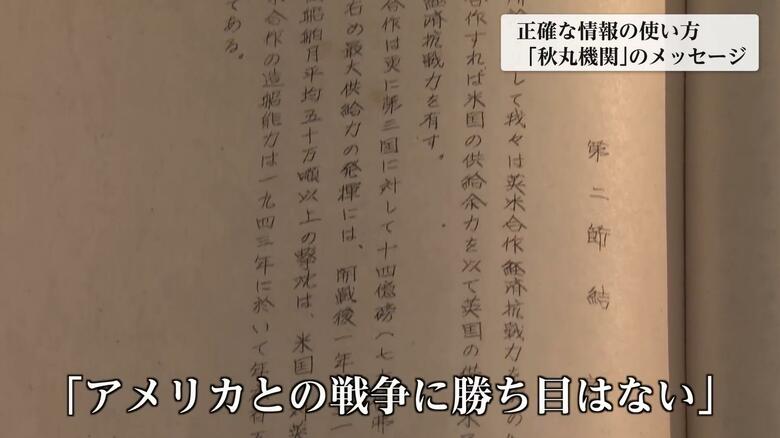 正確な情報の使い方
「秋丸機関」のメッセージ
第二節 結
して我々は英米合作経済抗戦力を
合作すれば米国の供給余力を以て英国の供
経済抗戦力を有す。
合作は更に第三国に対して十四億磅(七
め最大供給力の発揮には、開戦後一年
船舶月平均五十万噸以上の撃沈は、米国
米合作の造船能力は一九四三年に於いて年
である。
「アメリカとの戦争に勝ち目はない」